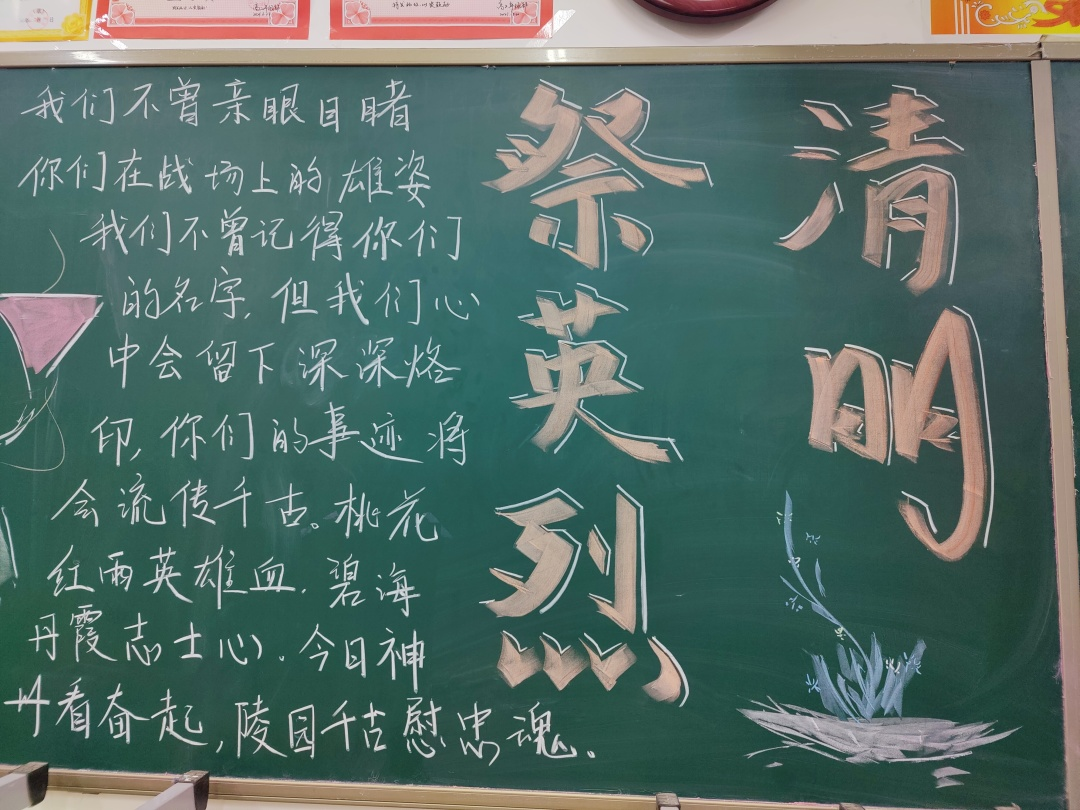 清明
祭英烈
我们不曾亲眼目睹
你们在战场上的雄姿
我们不曾记得你们
的名字,但我们心
中会留下深深烙
印,你们的事迹将
会流传千古。桃花
红雨英雄血,碧海
丹霞志士心。今日神
州看奋起,陵园千古慰忠魂。